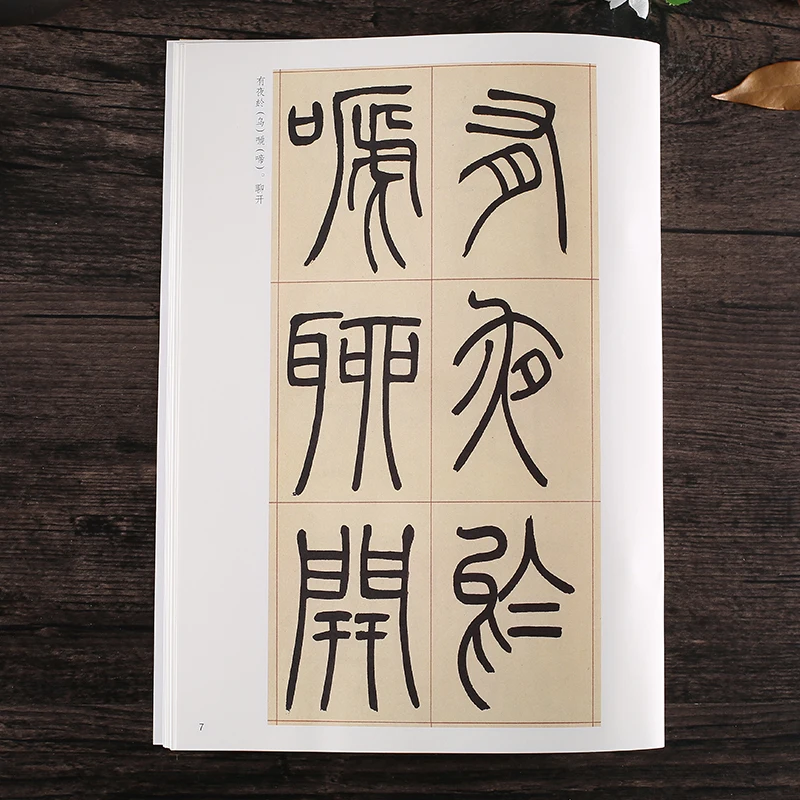 有夜於
嗁聊開
有夜於（乌）嗁（啼）。聊开
7